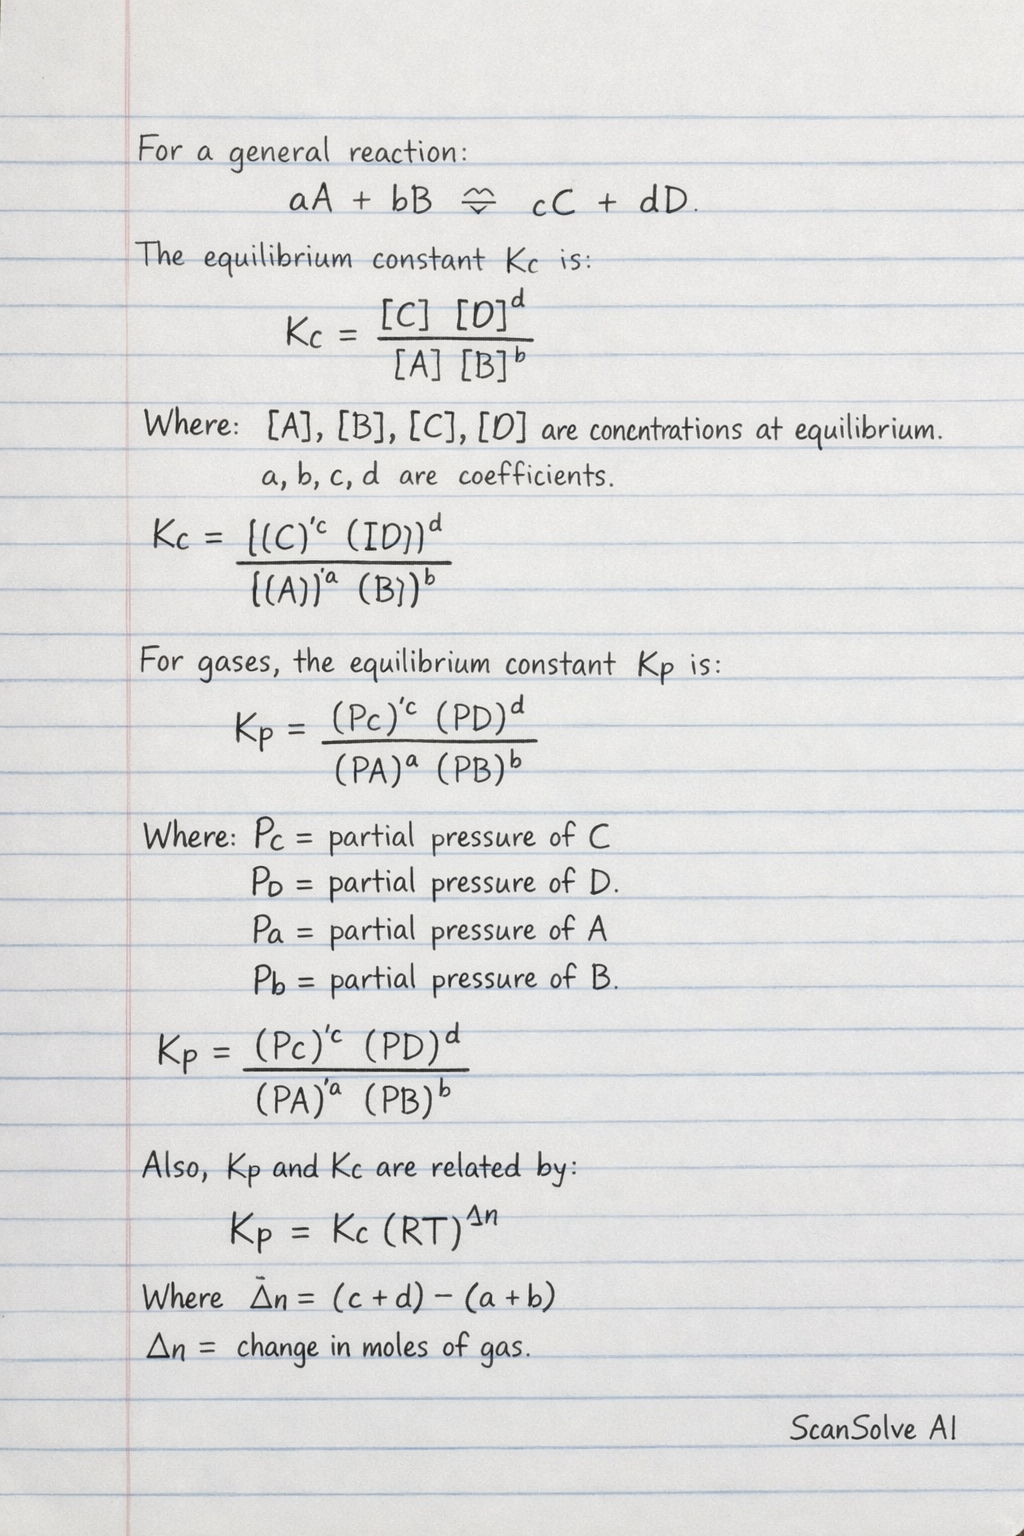 For a general reaction:
aA + bB ⇌ cC + dD.
The equilibrium constant Kc is:
Kc = [C] [D]^d
[A] [B]^b
Where: [A], [B], [C], [D] are concntrations at equilibrium.
a, b, c, d are coefficients.
Kc = [(C)'^c (ID))^d
[(A))'^a (B))^b
For gases, the equilibrium constant Kp is:
Kp = (Pc)'^c (PD)^d
(PA)^a (PB)^b
Where: Pc = partial pressure of C
PD = partial pressure of D.
Pa = partial pressure of A
Pb = partial pressure of B.
Kp = (Pc)'^c (PD)^d
(PA)'^a (PB)^b
Also, Kp and Kc are related by:
Kp = Kc (RT)^Δn
Where Δn = (c + d) - (a + b)
Δn = change in moles of gas.
ScanSolve AI